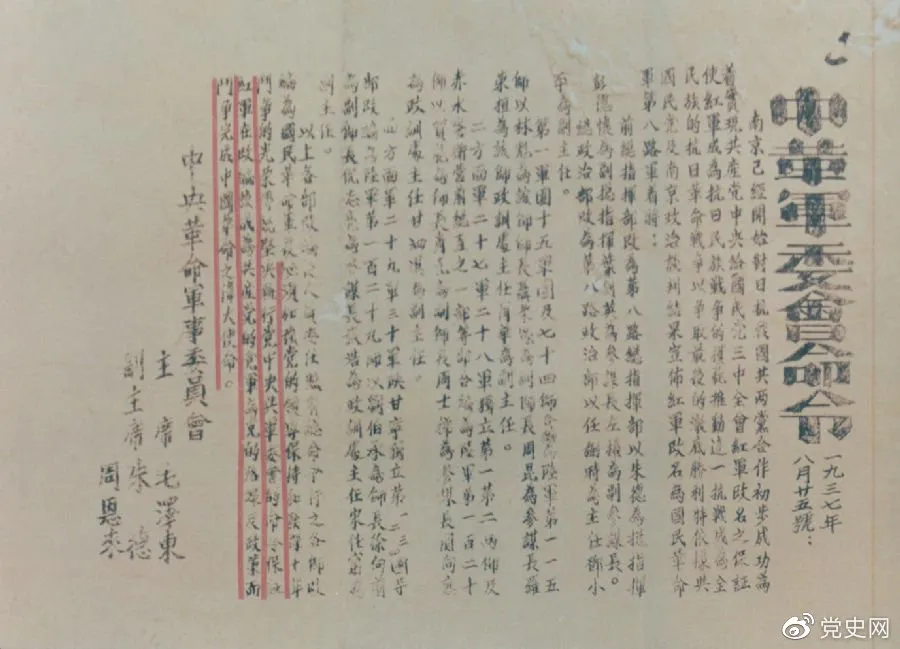 中華軍委會命令
一九三七年
八月廿五號：
南京已經開始對日抗戰國共兩黨合作初步成功為
着實現共產黨中央給國民党三中全會紅軍改名之保証
使紅軍成為抗日民族战爭的模範推動這一抗戰成為全
民族的抗日革命戰爭以爭取最後的澈底勝利特依據與
國民党及南京政治談判結果宣佈紅軍改名為國民革命
軍第八路軍着將：
前總指揮部改為第八路總指揮部以朱德為總指揮
彭德懷為副總指揮葉劍英為參謀長左權為副參謀長。
總政治部改為第八路政治部以任弼時為主任鄧小
平為副主任。
第一軍團十五軍團及七十四師合編為陸軍第一一五
師以林彪為該師師長聶榮臻為副師長周昆為參謀長羅
榮桓為該師政訓處主任蕭華為副主任。
二方面軍二十七軍二十八軍獨立第一第二兩師及
赤水警衛營前總直之一部等部合編為陸軍第一百二十
師以賀龍為師長蕭克為副師長周士第為參謀長関向應
為政訓處主任甘泗淇為副主任。
四方面軍二十九軍三十軍陝甘寧獨立第一二三四等
部改編為陸軍第一百二十九師以劉伯承為師長徐向前
為副師長倪志亮為參謀長張浩為政訓處主任宋任窮為
副主任。
以上各部改編後人員委任照前命令行之各部改
編為國民革命軍後必須加強党的領導保持和發揮十年
鬥爭的光榮傳統堅決執行党中央與軍委會的命令保証
紅軍在改編後成為共產党的党軍為党的路線及政策而
鬥爭完成中國革命之偉大使命。
中央革命軍事委員會
主席毛澤東
副主席朱德
周恩來
党史网